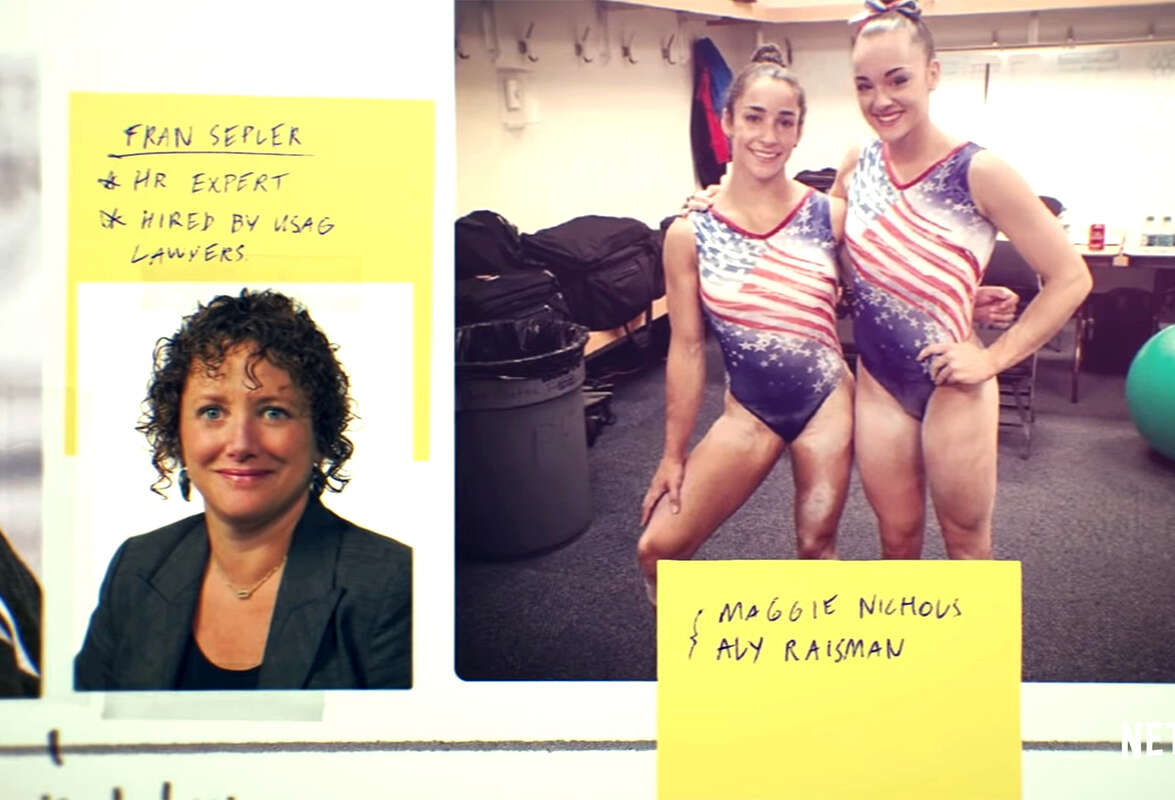 FRAN SEPLER
* HR EXPERT
* HIRED BY USAG
LAWYERS
MAGGIE NICHOLS
ALY RAISMAN
NE